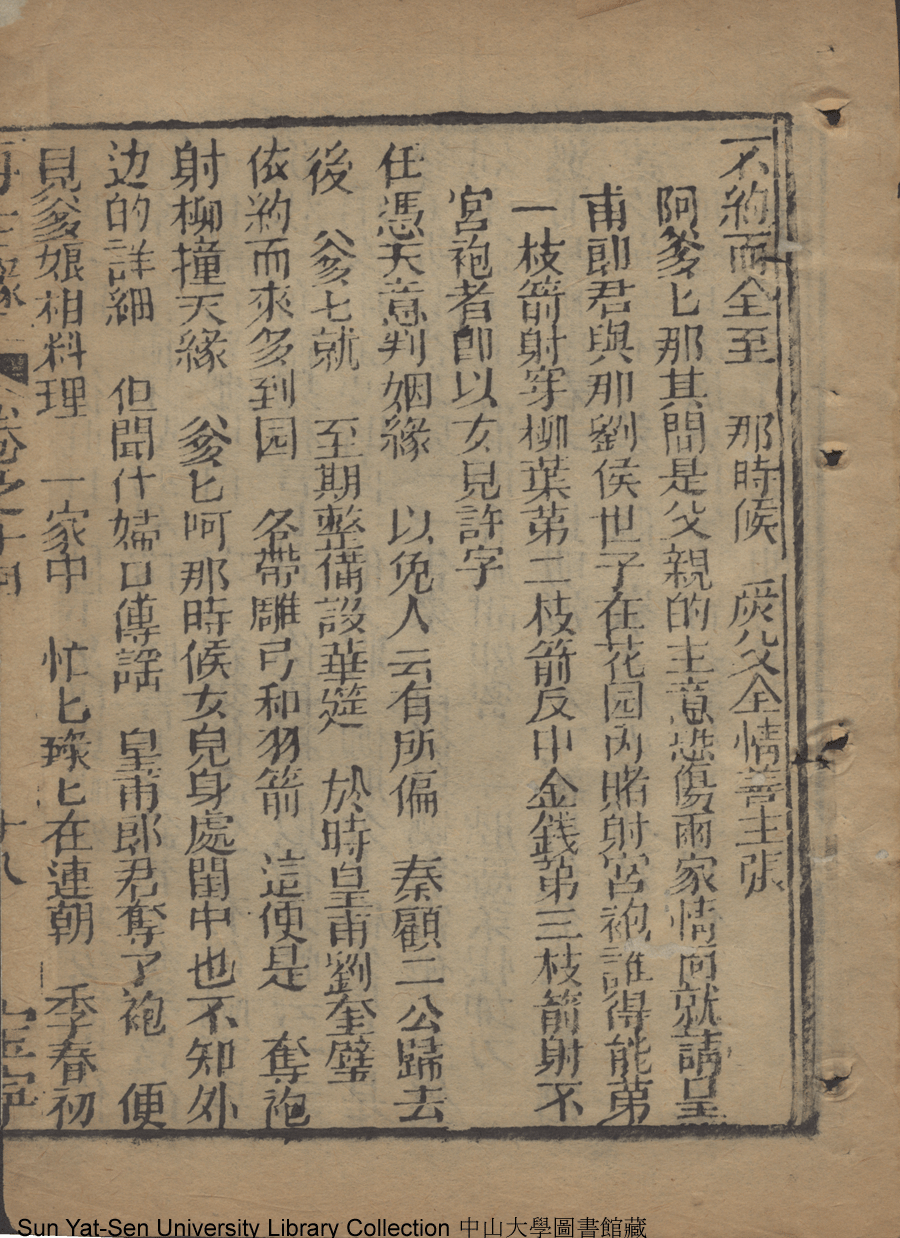 不約而仝至　那時候　嚴父仝情善主張
阿爹匕那其間是父親的主意恐傷兩家情面就請皇
甫郎君與那劉侯世子在花园內賭射宮袍誰得能第
一枝箭射穿柳葉第二枝箭反中金錢第三枝箭射不
宮袍者即以女兒許字
任憑天意判姻緣　以免人云有所偏　秦顧二公歸去
後　爹爹七就　至期整備設華筵　於時皇甫劉奎璧
依約而來多到园　各帶雕弓和羽箭　這便是　奪袍
射柳撞天緣　爹匕呵那時候女兒身處閨中也不知外
边的詳細　但聞什婦口傳謡　皇甫郎君奪了袍　便
見爹娘相料理　一家中　忙匕碌匕在連朝　季春初
再生緣　卷之十四　十八
Sun Yat-Sen University Library Collection 中山大學圖書館藏